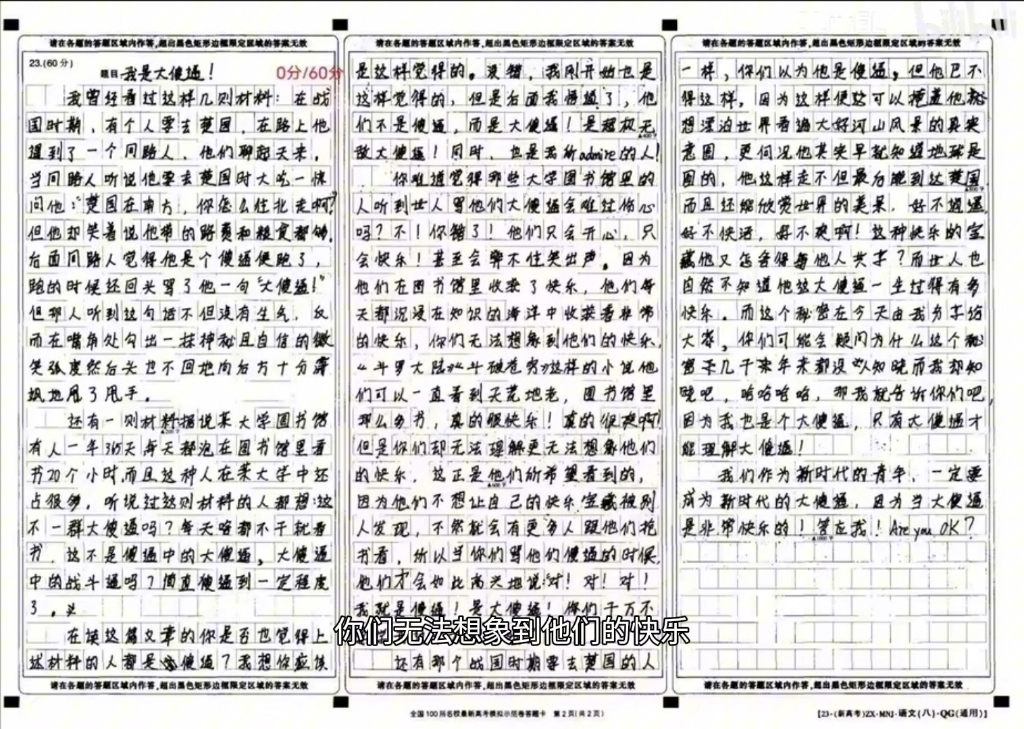 请在各题的答题区域内作答,超出黑色矩形边框限定区域的答案无效
23.(60分)
题目 我是大傻逼!
0分/60分
我曾经看过这样几则材料:在战
国时期,有个人要去楚国,在路上他
遇到了一个同路人,他们聊起天来,
当同路人听说他要去楚国时大吃一惊
问他:"楚国在南方,你怎么往北走啊?
但他却笑着说他带的路费和粮食都够,
后面同路人觉得他是个傻逼便跑了,
跑的时候还回头骂了他一句"大傻逼!"
但那人听到这句话不但没有生气,反
而在嘴角处勾出一抹神秘且自信的微
笑弧度然后头也不回地向后方十分潇
飒地甩了甩手。
还有一则材料据说某大学图书馆
有人一年365天每天都泡在图书馆里看
书20个小时,而且这种人在某大学中还
占很多,听说过这则材料的人都想:这
不一群大傻逼吗?每天啥都不干就看
书,这不是傻逼中的大傻逼,大傻逼
中的战斗逼吗?简直傻逼到一定程度
了。
在读这篇文章的你是否也觉得上
述材料的人都是傻逼?我想你应该
请在各题的答题区域内作答,超出黑色矩形边框限定区域的答案无效
请在各题的答题区域内作答,超出黑色矩形边框限定区域的答案无效
是这样觉得的。没错,我刚开始也是
这样觉得的,但是后面我悟逼了,他
们不是傻逼,而是大傻逼!是超级无
敌大傻逼!同时,也是我所admire的人!
你难道觉得那些大学图书馆里的
人听到世人骂他们大傻逼会难过伤心
吗?不!你错了!他们只会开心,只
会快乐!甚至会禁不住笑出声。因为
他们在图书馆里收获了快乐,他们每
天都沉浸在知识的海洋中收获着非常
的快乐,你们无法想象到他们的快乐,
《斗罗大陆》《斗破苍穹》这样的小说他
们可以一直看到天荒地老,图书馆里
那么多书,真的很快乐!真的很爽啊!
但是你们却无法理解更无法想象他们
的快乐,这正是他们所希望看到的,
因为他们不想让自己的快乐宝藏被别
人发现,不然就会有更多人跟他们抢
书看,所以当你们骂他们傻逼的时候,
他们才会如此高兴地说:对!对!对!
我就是傻逼!是大傻逼!你们千万不
你们无法想象到他们的快乐
还有那个战国时期要去楚国的人
请在各题的答题区域内作答,超出黑色矩形边框限定区域的答案无效
全国100所名校最新高考模拟示范卷答题卡 第2页(共2页)
请在各题的答题区域内作答,超出黑色矩形边框限定区域的答案无效
一样,你们以为他是傻逼,但他巴不
得这样,因为这样便这可以掩盖他就
想漂泊世界看遍大好河山风景的真实
意图,更何况他其实早就知道地球是
圆的,他这样走不但最后能到达楚国
而且还能欣赏世界的美景,好不逍遥,
好不快活,好不爽啊!这种快乐的宝
藏他又怎舍得与他人共享?而世人也
自然不知道他这大傻逼一生过得有多
快乐。而这个秘密在今天由我分享给
大家,你们可能会疑问为什么这个秘
密在几千来年来都没人知晓而我却知
晓呢,哈哈哈哈,那我就告诉你们吧,
因为我也是个大傻逼,只有大傻逼才
能理解大傻逼!
我们作为新时代的青年,一定要
成为新时代的大傻逼,因为当大傻逼
是非常快乐的!赞在我!Are you OK?
请在各题的答题区域内作答,超出黑色矩形边框限定区域的答案无效
【23·(新高考)ZX·MNJ·语文(八)·QG(通用)】
bilibili